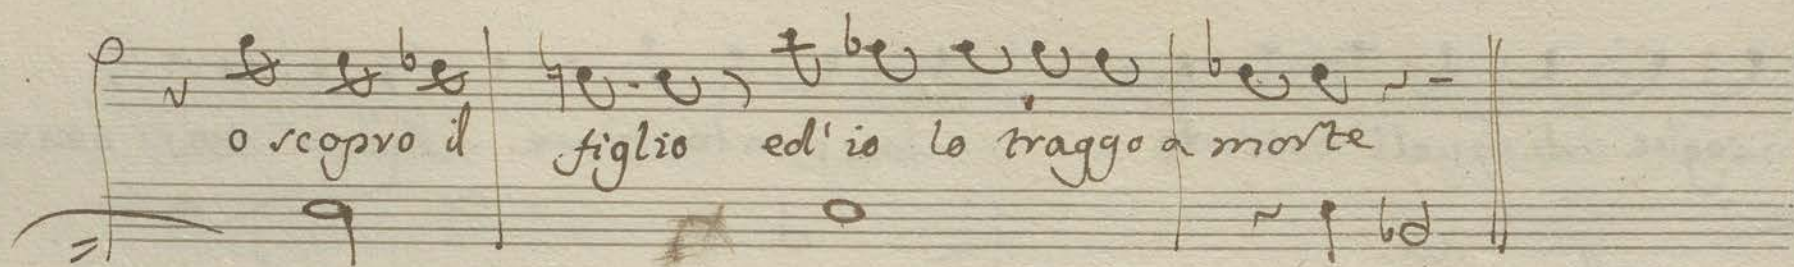 o scopro il figlio ed' io lo traggo a morte